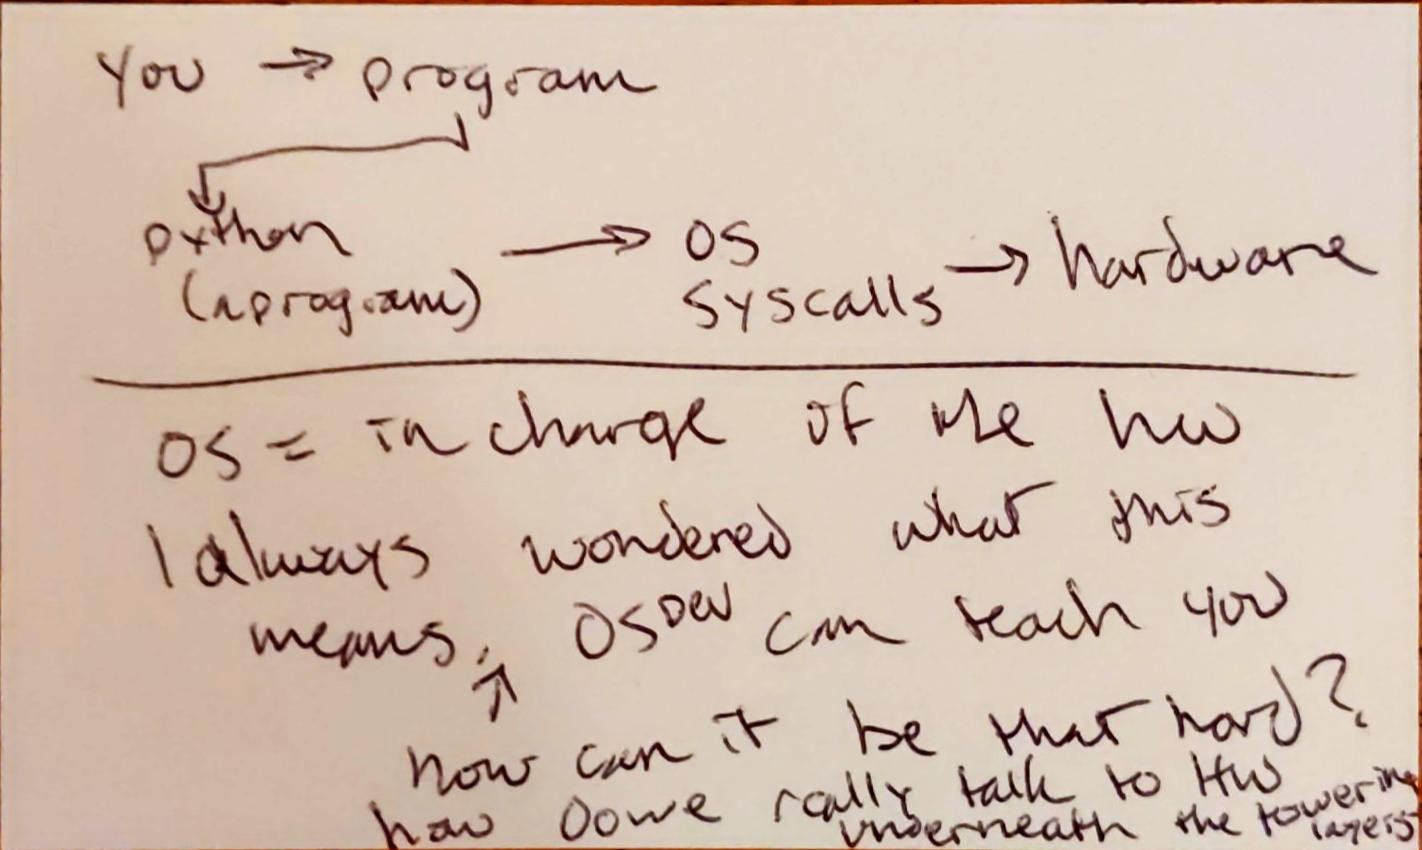 you → program
python → OS → hardware
(a program) syscalls
OS = in charge of the hw
I always wondered what this
means. OSDEV can teach you
how can it be that hard?
how do we really talk to HW
underneath the towering
layers